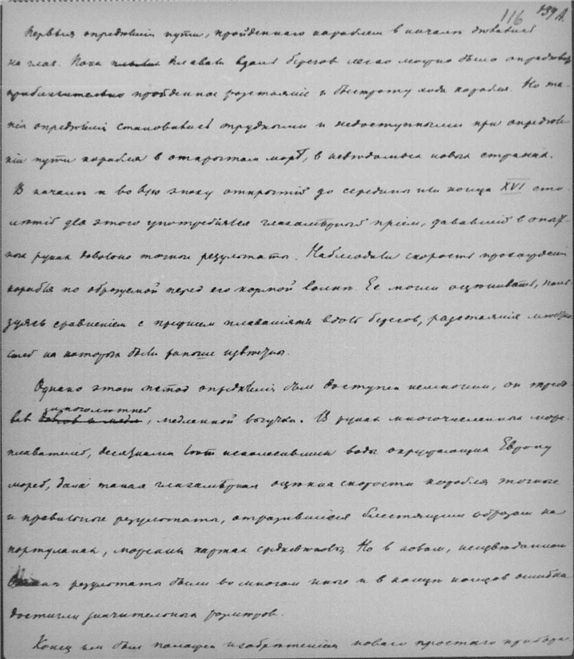 116 139 А.
Первыя определенiя пути, пройденнаго кораблем в начале делались
на глаз. Пока плавали вдоль берегов легко можно было определять
приблизительно пройденное разстоянiе и быстроту хода корабля. Но та-
кiя определенiя становились трудными и недоступными при определе-
нiи пути корабля в открытом море, в неведомых новых странах.
В начале и во всю эпоху открытiй до середины или конца XVI сто-
летiя для этого употреблялся глазомерный прiем, дававшiй в опыт-
ных руках довольно точные результаты. Наблюдали скорость прохожденiя
корабля по образуемой перед его кормой волне. Ее могли оценивать, поль-
зуясь сравненiем с прежними плаванiями вдоль берегов, разстоянiя между
на которых были раньше известны.
Однако этот метод определенiя был доступен немногим, он требо-
вал многолетней
, медленной выучки. В руках многочисленных море-
плавателей, десятками лет исколесивших воды окружающих Европу
морей, дала такая глазомерная оценка скорости корабля точные
и правильные результаты, отразившiеся блестящим образом на
портуланах, морских картах средневековья. Но в новом, неизведанном
результаты были во многом иные и в конце концов ошибки
достигли значительных размеров.
Конец им был положен изобретенiем новаго простого прибора